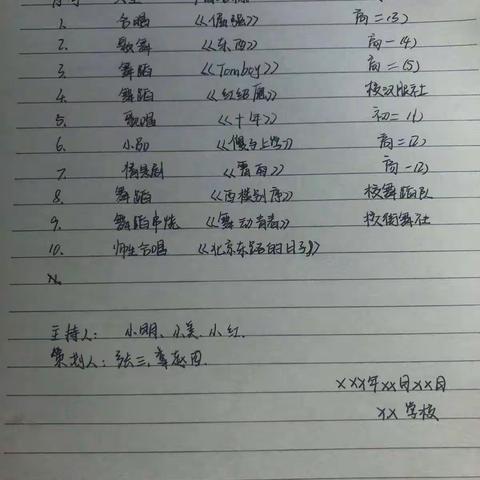 1. 合唱 《倔强》 高二(3)
2. 歌舞 《东西》 高一(4)
3 舞蹈 《Tomboy》 高二(5)
4. 舞蹈 《红绍愿》 校汉服社
5. 歌唱 《十年》 初二(1)
6. 小品 《傻与上学》 高二(2)
7. 情景剧 《雷雨》 高一(2)
8. 舞蹈 《西楼别序》 校舞蹈队
9. 舞蹈串烧 《舞动青春》 校街舞社
10. 师生合唱 《北京东路的日子》
主持人: 小明、小美、小红.
策划人: 张三、李四.
XXX年XX月XX日
XX 学校